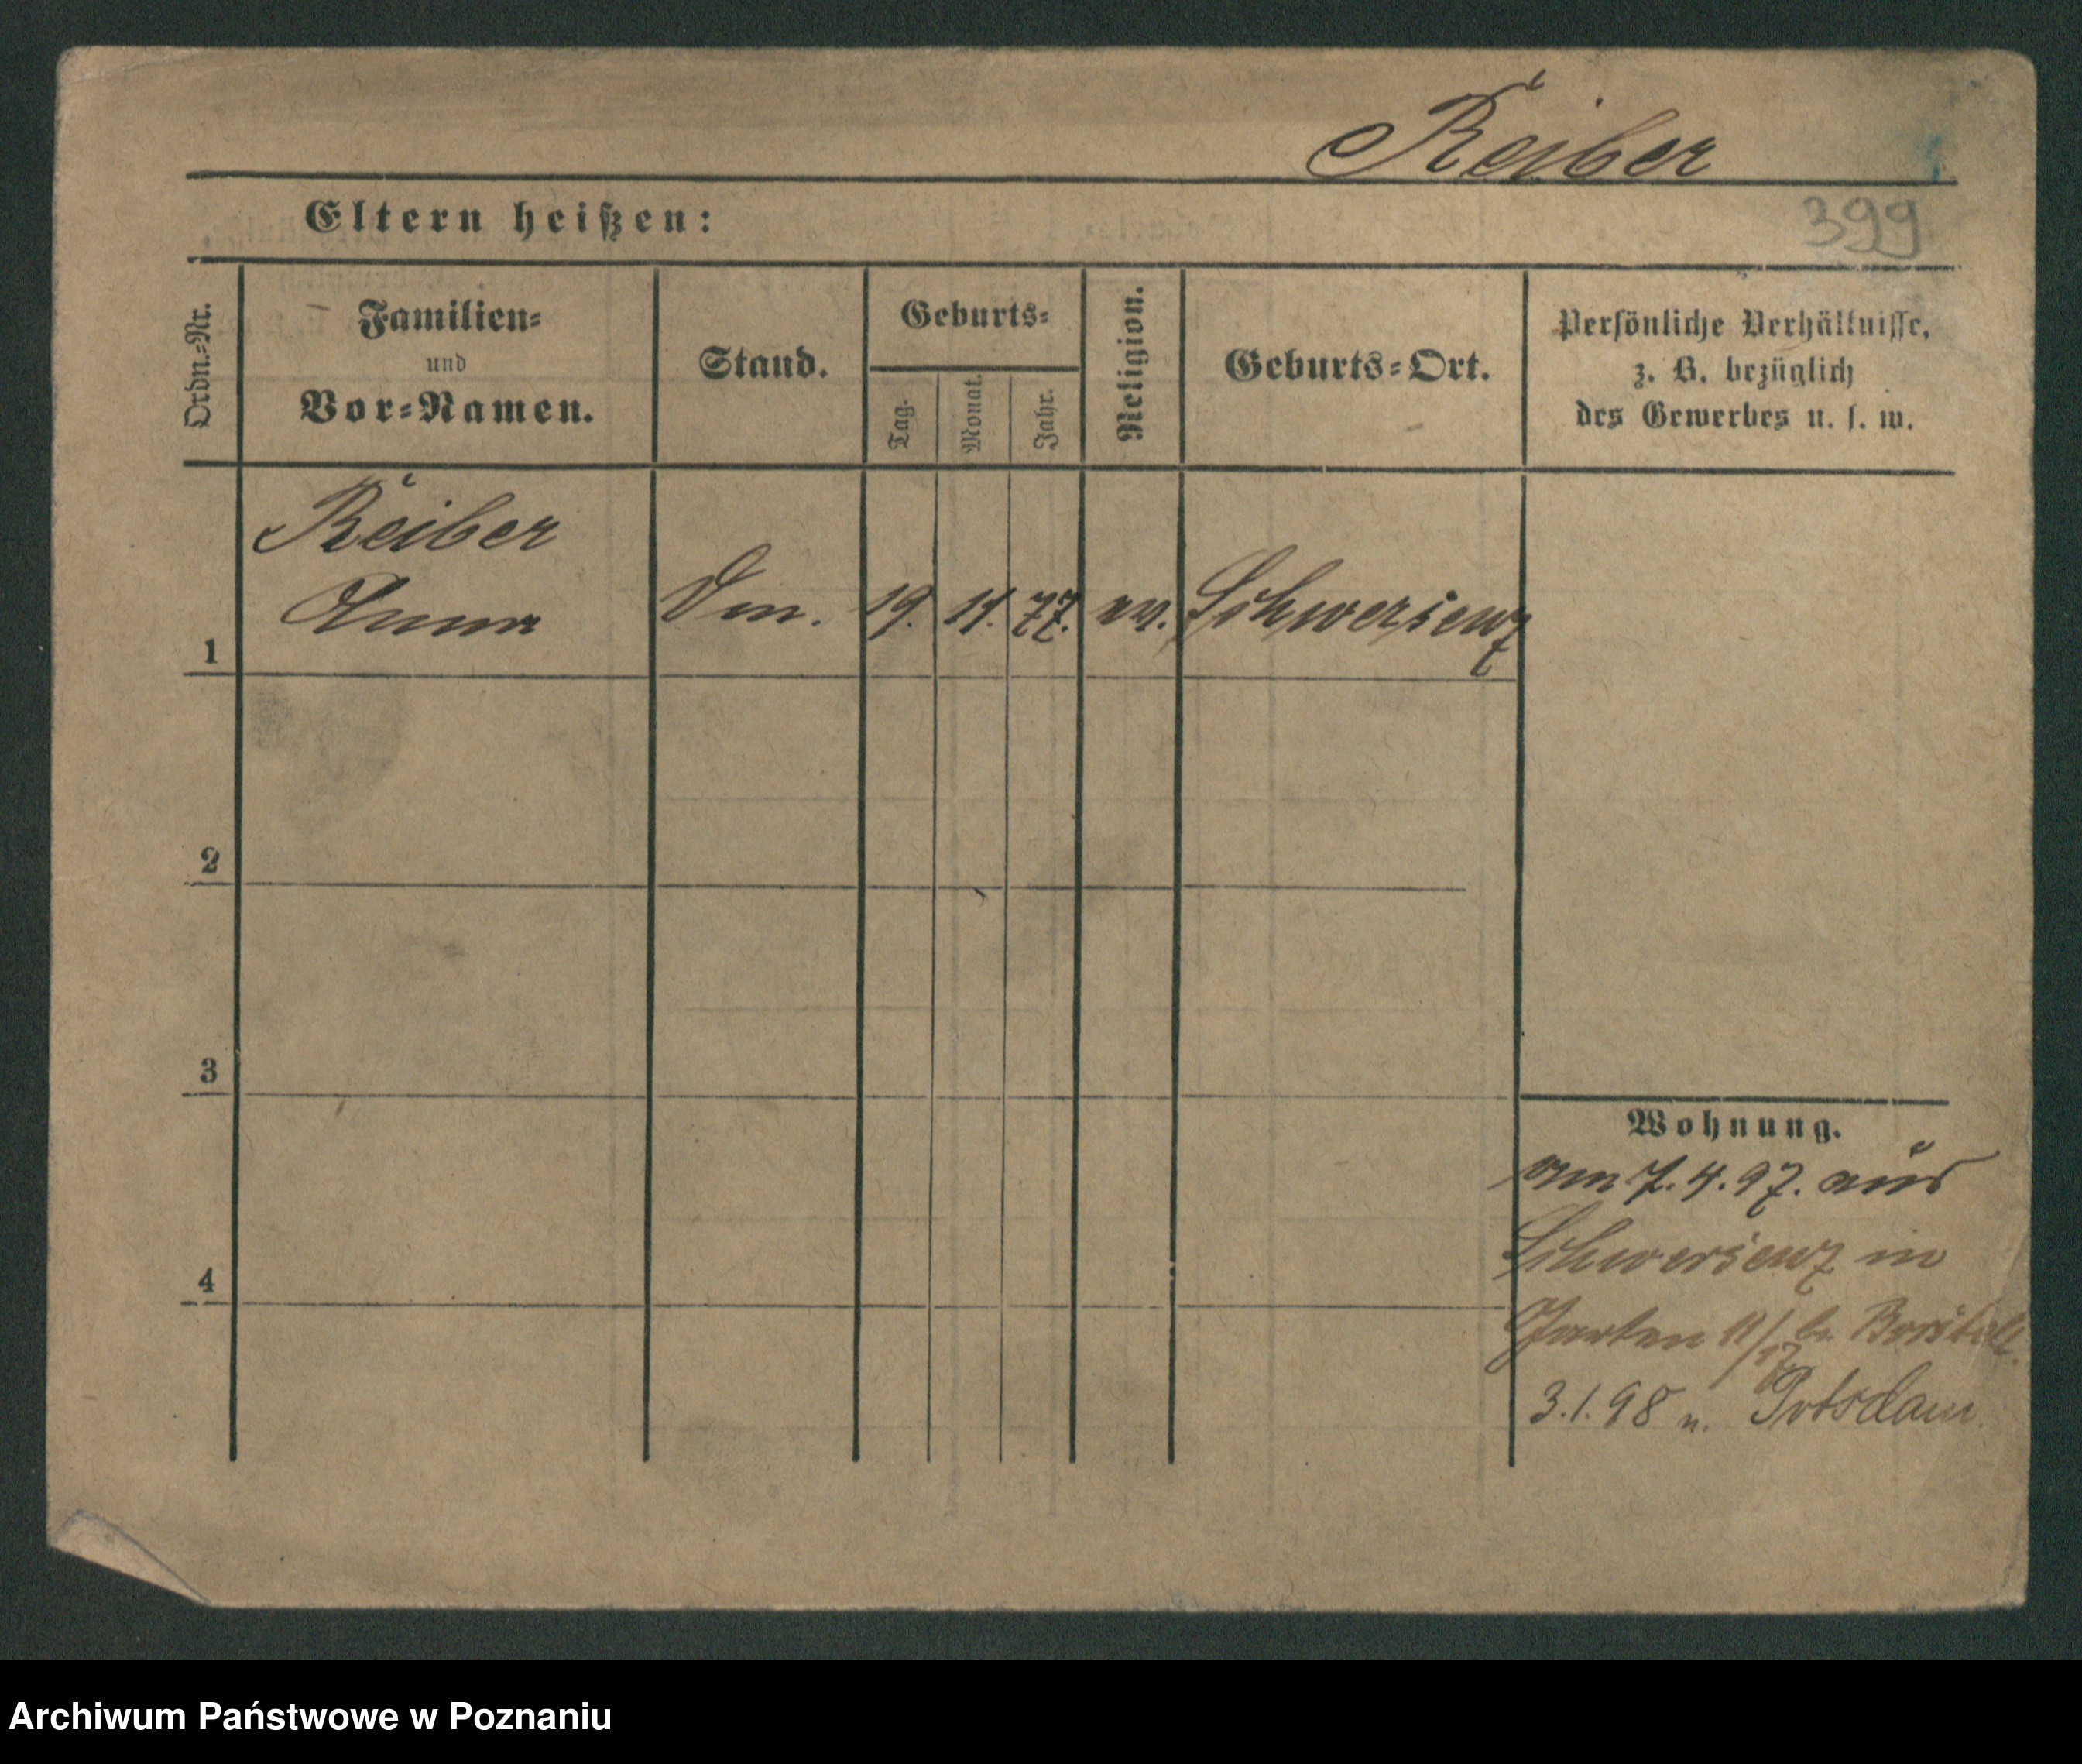 Reiber
Eltern heißen:
399
Ordn.=Nr.
Familien=
und
Vor=Namen.
Stand.
Geburts=
Tag.
Monat.
Jahr.
Religion.
Geburts=Ort.
Persönliche Verhältnisse,
z. B. bezüglich
des Gewerbes u. s. w.
Reiber
Anna
1
19.
11.
77.
ev.
Schwersenz
2
3
4
Wohnung.
am 7.4.97. aus
Schwersenz in
Garten 11/ b.
3.1.98 n. Potsdam
Archiwum Państwowe w Poznaniu